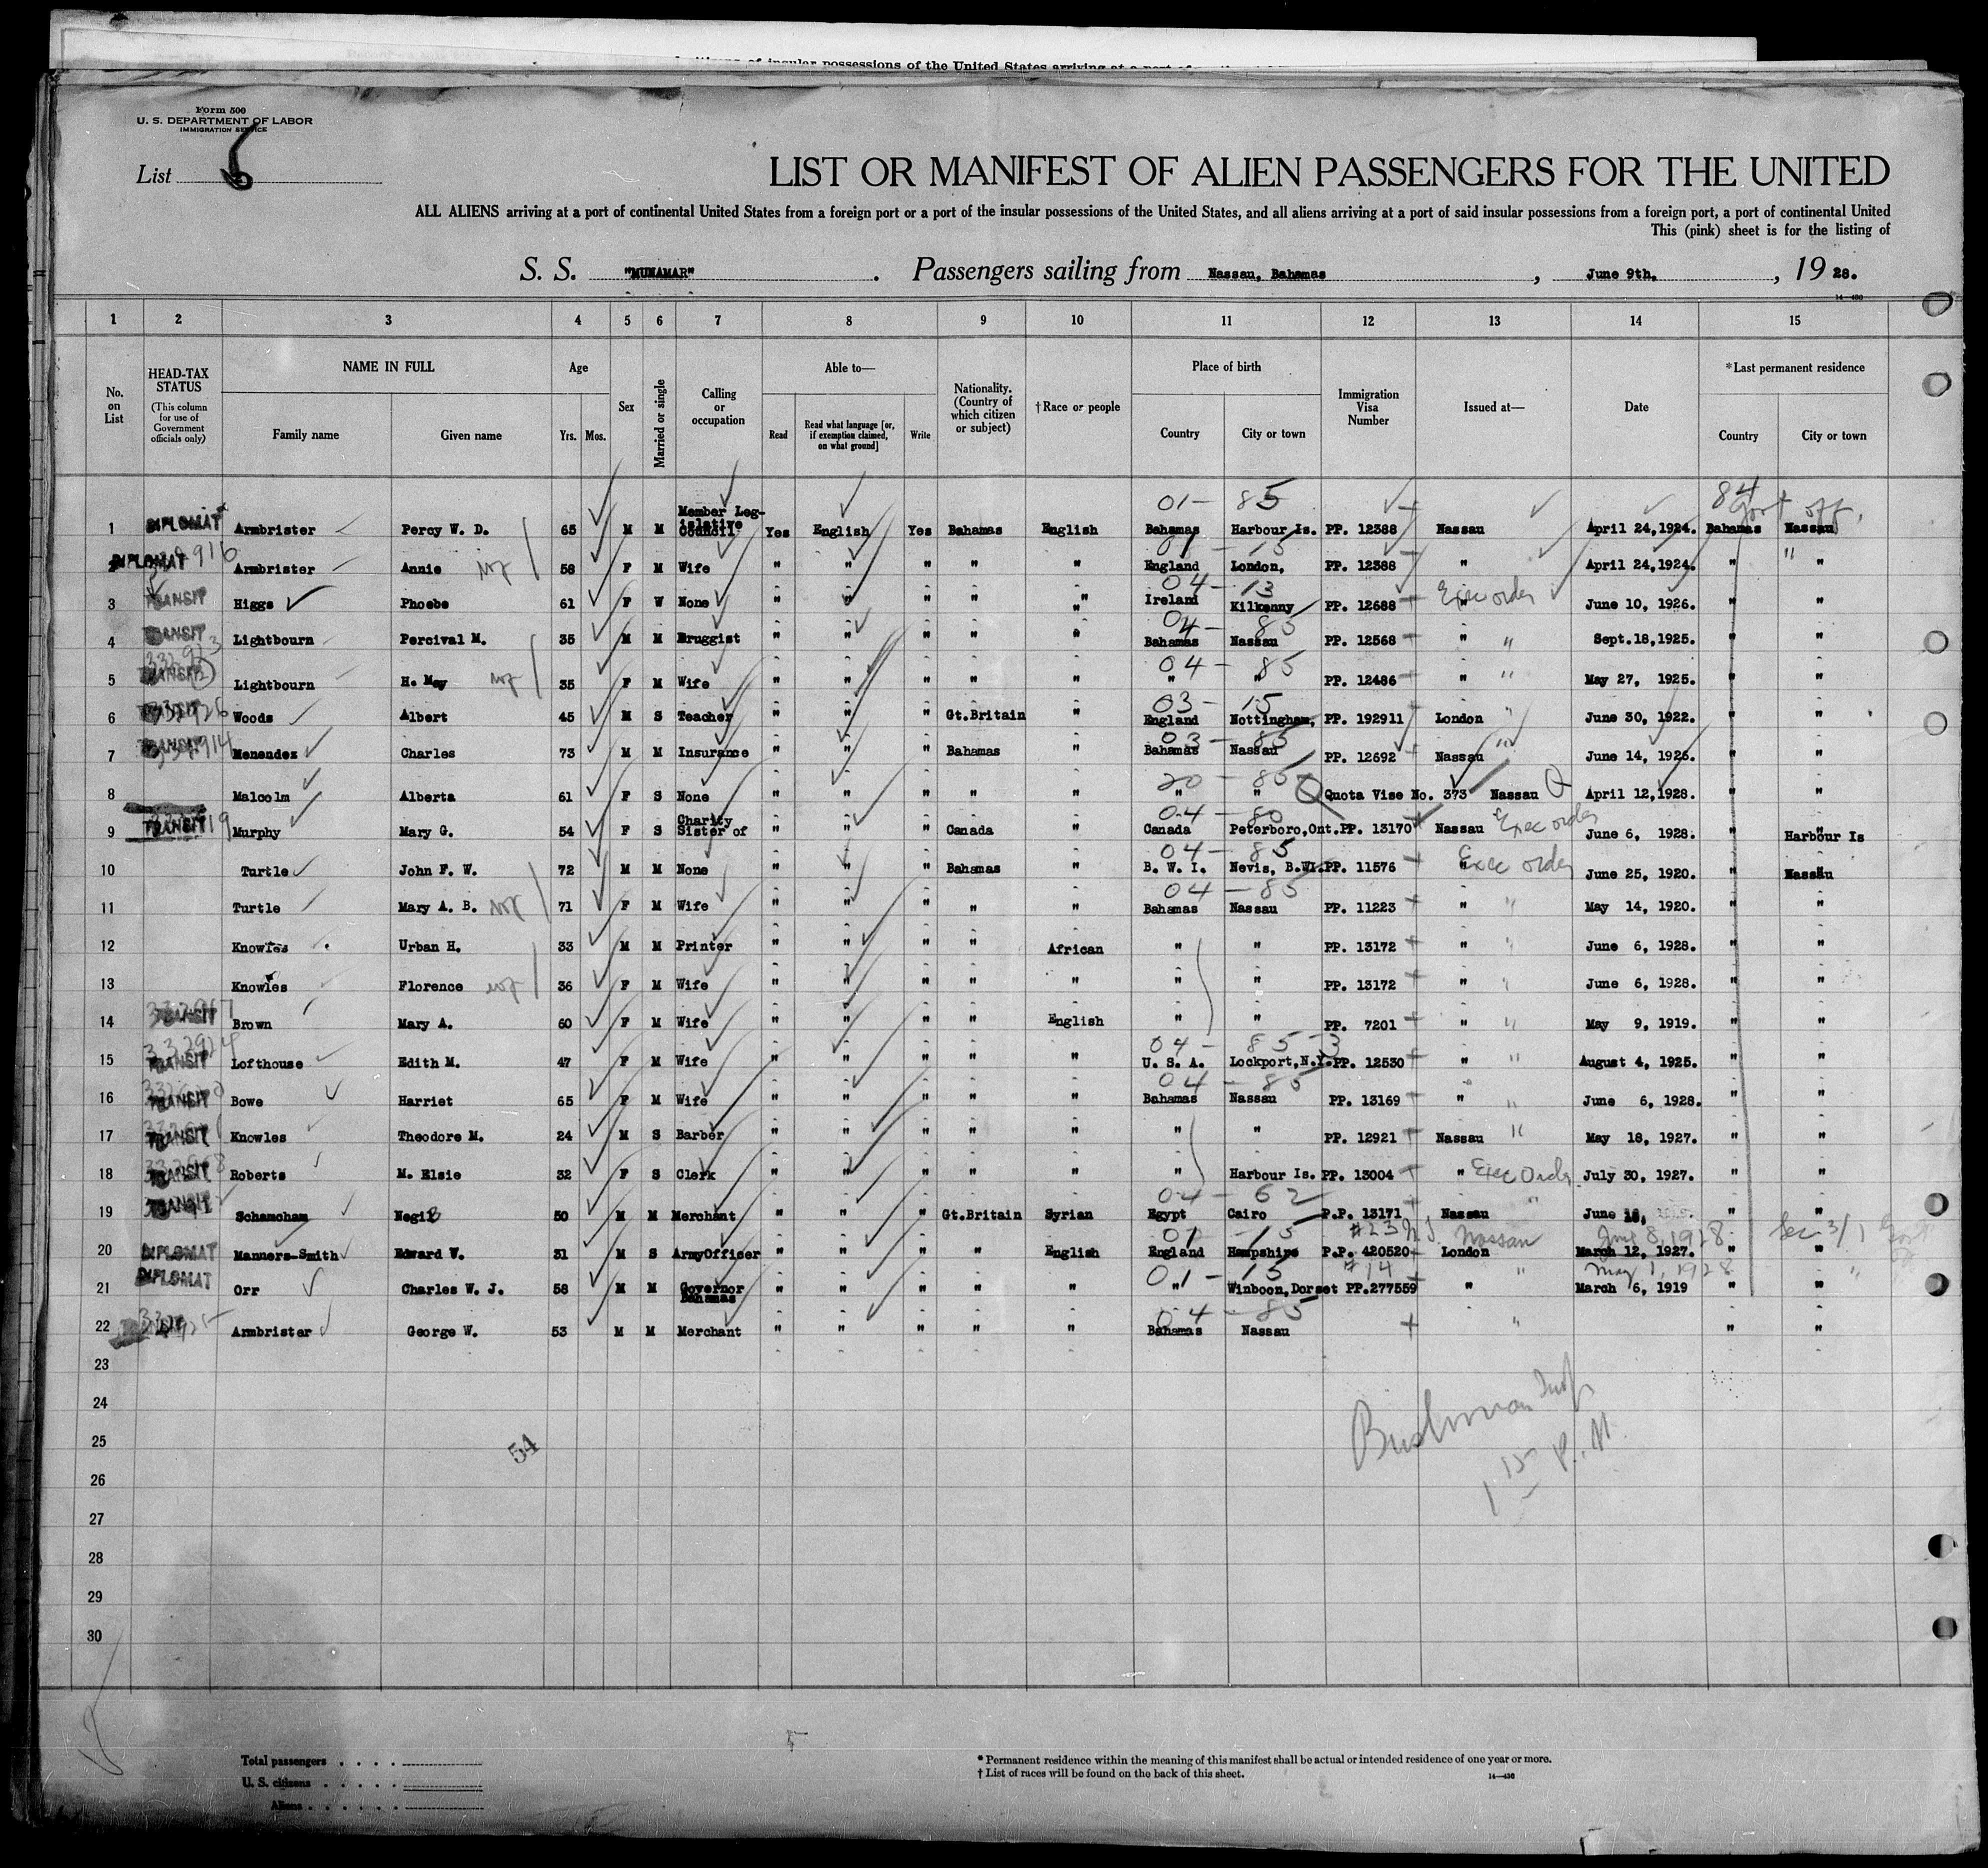 itizens of insular possessions of the United States arriving at a port of
Form 500
U. S. DEPARTMENT OF LABOR
IMMIGRATION SERVICE
List 6
LIST OR MANIFEST OF ALIEN PASSENGERS FOR THE UNITED
ALL ALIENS arriving at a port of continental United States from a foreign port or a port of the insular possessions of the United States, and all aliens arriving at a port of said insular possessions from a foreign port, a port of continental United
This (pink) sheet is for the listing of
S. S. "MUNAMAR" . Passengers sailing from Nassau, Bahamas , June 9th, , 19 28.
14—430
1 2 3 4 5 6 7 8 9 10 11 12 13 14 15
No. on List
HEAD-TAX STATUS (This column for use of Government officials only)
NAME IN FULL Family name Given name
Age Yrs. Mos.
Sex
Married or single
Calling or occupation
Able to— Read Read what language [or, if exemption claimed, on what ground] Write
Nationality. (Country of which citizen or subject)
†Race or people
Place of birth Country City or town
Immigration Visa Number
Issued at—
Date
*Last permanent residence Country City or town
01 - 85 84 Govt off.
1 DIPLOMAT Armbrister Percy W. D. 65 M M Member Legislative Council Yes English Yes Bahamas English Bahamas Harbour Is. PP. 12388 Nassau April 24,1924. Bahamas Nassau
01 - 15
2 DIPLOMAT 916 Armbrister Annie 58 F M Wife " " " " " England London, PP. 12388 " April 24,1924. " "
04 - 13
3 TRANSIT Higgs Phoebe 61 F W None " " " " " Ireland Kilkenny PP. 12688 " Exec order June 10, 1926. " "
04 - 85
4 TRANSIT Lightbourn Percival M. 35 M M Druggist " " " " " Bahamas Nassau PP. 12568 " " Sept.18,1925. " "
04 - 85
5 TRANSIT Lightbourn H. May 35 F M Wife " " " " " " " PP. 12486 " " May 27, 1925. " "
03 - 15
6 Woods Albert 45 M S Teacher " " " Gt.Britain " England Nottingham, PP. 192911 London " June 30, 1922. " "
03 - 85
7 TRANSIT Menendez Charles 73 M M Insurance " " " Bahamas " Bahamas Nassau PP. 12692 Nassau " June 14, 1926. " "
20 - 85
8 Malcolm Alberta 61 F S None " " " " " " " Quota Vise No. 373 Nassau April 12,1928. " "
04 - 80
9 TRANSIT Murphy Mary G. 54 F S Charity Sister of " " " Canada " Canada Peterboro,Ont. PP. 13170 Nassau Exec order June 6, 1928. " Harbour Is
04 - 85
10 Turtle John F. W. 72 M M None " " " Bahamas " B. W. I. Nevis, B.WI. PP. 11576 " Exec order June 25, 1920. " Nassau
04 - 85
11 Turtle Mary A. B. 71 F M Wife " " " " " Bahamas Nassau PP. 11223 " " May 14, 1920. " "
12 Knowles Urban H. 33 M M Printer " " " " African " " PP. 13172 " " June 6, 1928. " "
13 Knowles Florence 36 F M Wife " " " " " " " PP. 13172 " " June 6, 1928. " "
14 TRANSIT Brown Mary A. 60 F M Wife " " " " English " " PP. 7201 " " May 9, 1919. " "
04 - 85
15 TRANSIT Lofthouse Edith M. 47 F M Wife " " " " " U. S. A. Lockport,N.Y. PP. 12530 " " August 4, 1925. " "
04 - 85
16 TRANSIT Bowe Harriet 65 F M Wife " " " " " Bahamas Nassau PP. 13169 " " June 6, 1928. " "
17 TRANSIT Knowles Theodore M. 24 M S Barber " " " " " " " PP. 12921 Nassau " May 18, 1927. " "
18 TRANSIT Roberts M. Elsie 32 F S Clerk " " " " " " Harbour Is. PP. 13004 " Exec Order July 30, 1927. " "
04 - 62
19 TRANSIT Schamcham Negib 50 M M Merchant " " " Gt.Britain Syrian Egypt Cairo P.P. 13171 Nassau " June " "
01 - 15 #23 Nassau June 8, 1928 Sec 3/1 Govt
20 DIPLOMAT Manners-Smith Edward W. 31 M S ArmyOfficer " " " " English England Hampshire P.P. 420520 London March 12, 1927. " "
01 - 15 #14 " May 1, 1928
21 DIPLOMAT Orr Charles W. J. 58 M M Governor Bahamas " " " " " " Winboon,Dorset PP.277559 " March 6, 1919 " "
04 - 85
22 Armbrister George W. 53 M M Merchant " " " " " Bahamas Nassau " " "
23
24
25
26
27
28
29
30
54
Bushman Insp
1 15 P.M.
Total passengers . . . .
U. S. citizens . . . . .
Aliens . . . . . .
* Permanent residence within the meaning of this manifest shall be actual or intended residence of one year or more.
† List of races will be found on the back of this sheet.
14—430